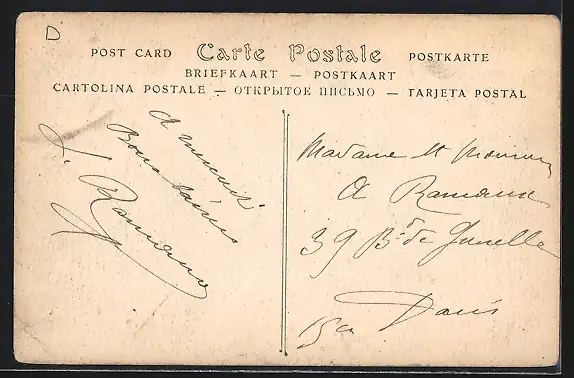 D
POST CARD Carte Postale POSTKARTE
BRIEFKAART — POSTKAART
CARTOLINA POSTALE — ОТКРЫТОЕ ПИСЬМО — TARJETA POSTAL
A
Bons
J. Ramame
Madame et Monsieur
A Ramame
39 Bd de Grenelle
Paris
15e